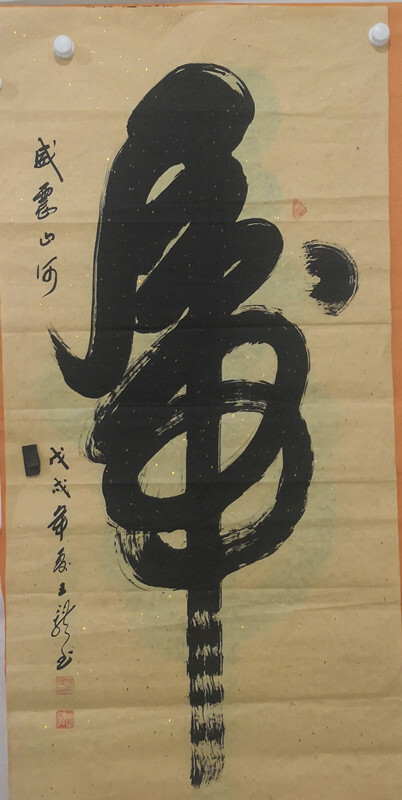 虎
威震山河
戊戌年夏王龍书